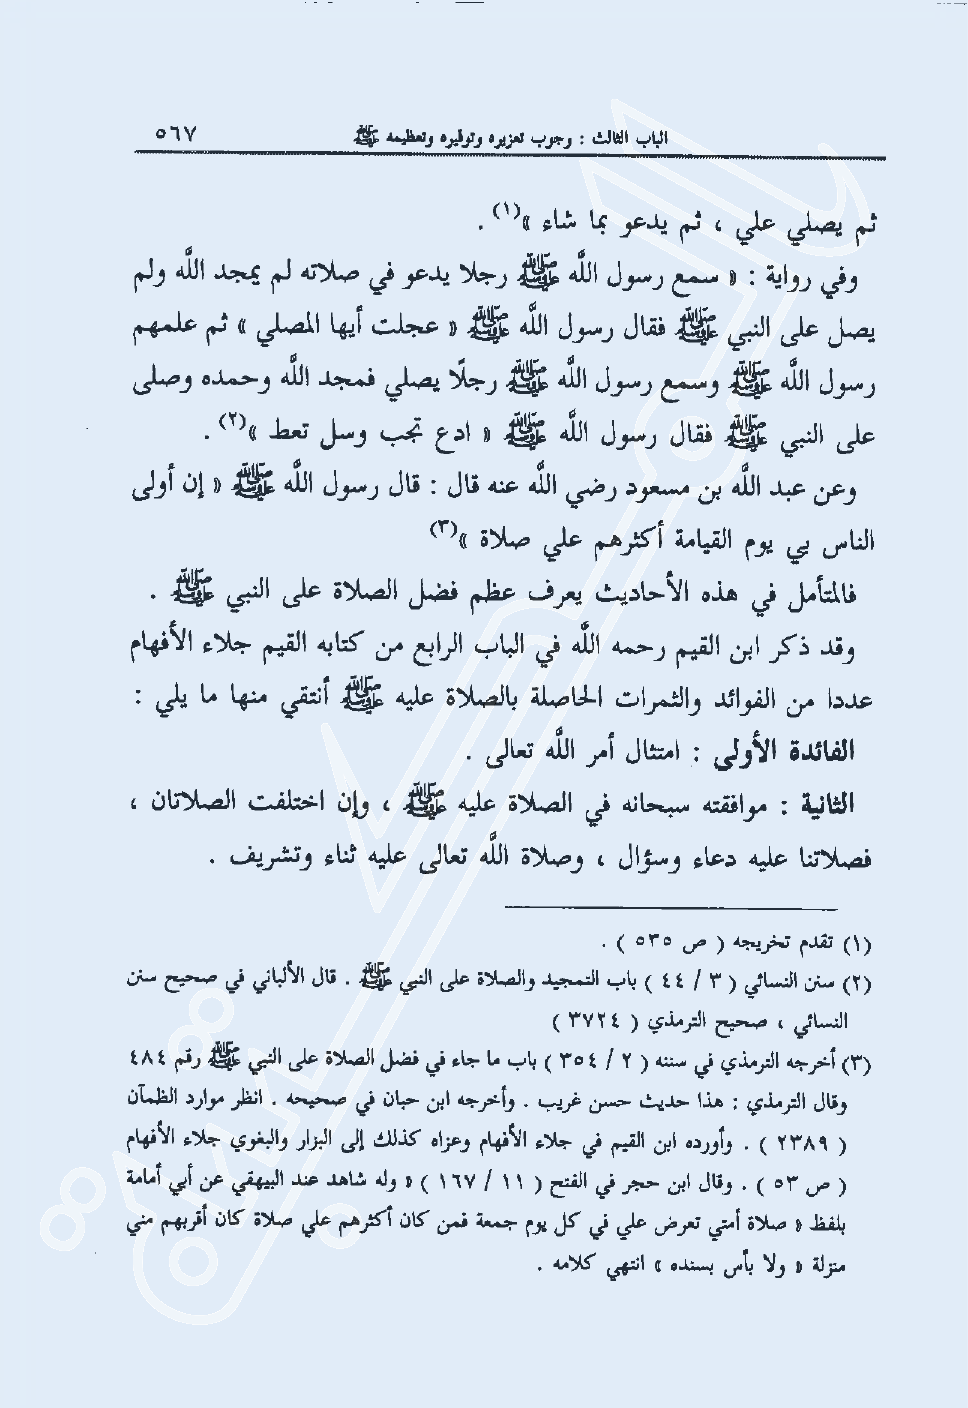 الباب الثالث : وجوب تعزيره وتوقيره وتعظيمه ﷺ ٥٦٧
ثم يصلي علي ، ثم يدعو بما شاء »(١) .
وفي رواية : « سمع رسول الله ﷺ رجلا يدعو في صلاته لم يمجد الله ولم
يصل على النبي ﷺ فقال رسول الله ﷺ « عجلت أيها المصلي » ثم علمهم
رسول الله ﷺ وسمع رسول الله ﷺ رجلًا يصلي فمجد الله وحمده وصلى
على النبي ﷺ فقال رسول الله ﷺ « ادع تجب وسل تعط »(٢) .
وعن عبد الله بن مسعود رضي الله عنه قال : قال رسول الله ﷺ « إن أولى
الناس بي يوم القيامة أكثرهم علي صلاة »(٣)
فالمتأمل في هذه الأحاديث يعرف عظم فضل الصلاة على النبي ﷺ .
وقد ذكر ابن القيم رحمه الله في الباب الرابع من كتابه القيم جلاء الأفهام
عددا من الفوائد والثمرات الحاصلة بالصلاة عليه ﷺ أنتقي منها ما يلي :
الفائدة الأولى : امتثال أمر الله تعالى .
الثانية : موافقته سبحانه في الصلاة عليه ﷺ ، وإن اختلفت الصلاتان ،
فصلاتنا عليه دعاء وسؤال ، وصلاة الله تعالى عليه ثناء وتشريف .
(١) تقدم تخريجه ( ص ٥٣٥ ) .
(٢) سنن النسائي ( ٣ / ٤٤ ) باب التمجيد والصلاة على النبي ﷺ . قال الألباني في صحيح سنن
النسائي ، صحيح الترمذي ( ٣٧٢٤ )
(٣) أخرجه الترمذي في سننه ( ٢ / ٣٥٤ ) باب ما جاء في فضل الصلاة على النبي ﷺ رقم ٤٨٤
وقال الترمذي : هذا حديث حسن غريب . وأخرجه ابن حبان في صحيحه . انظر موارد الظمآن
( ٢٣٨٩ ) . وأورده ابن القيم في جلاء الأفهام وعزاه كذلك إلى البزار والبغوي جلاء الأفهام
( ص ٥٣ ) . وقال ابن حجر في الفتح ( ١١ / ١٦٧ ) « وله شاهد عند البيهقي عن أبي أمامة
بلفظ « صلاة أمتي تعرض علي في كل يوم جمعة فمن كان أكثرهم علي صلاة كان أقربهم مني
منزلة « ولا بأس بسنده » انتهي كلامه .